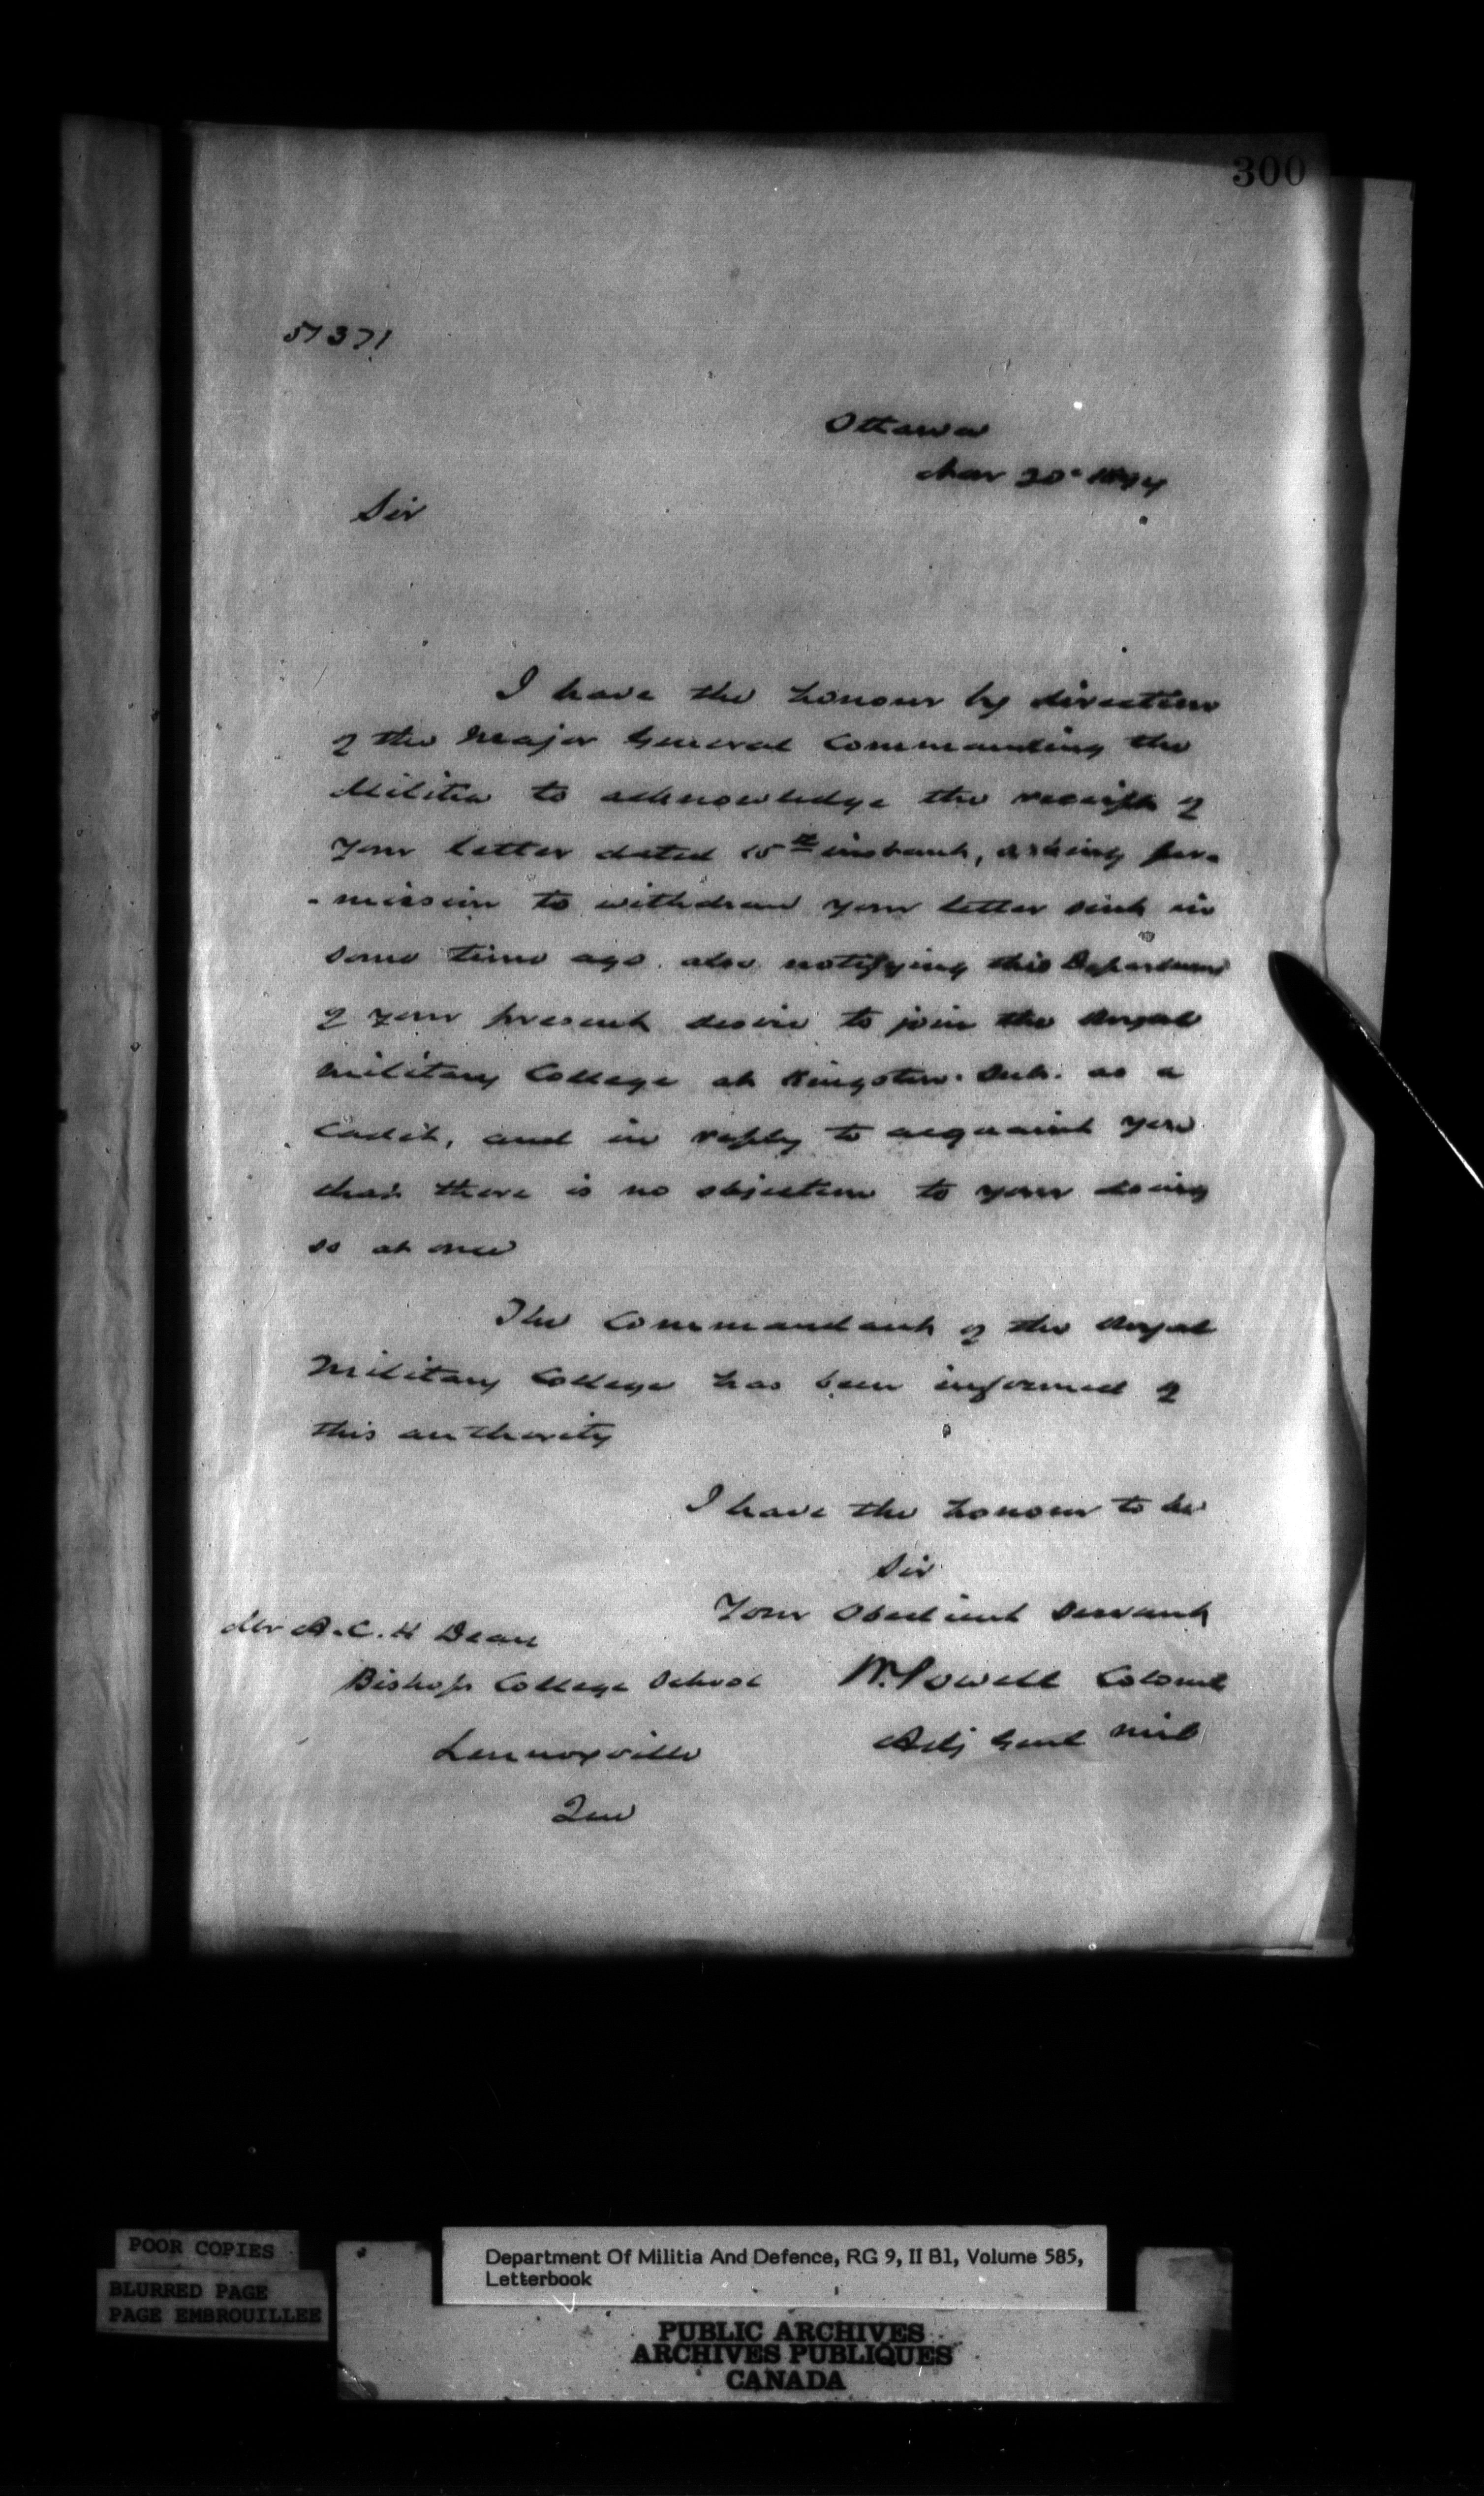 300
51371
Ottawa
Mar 20th
Sir
I have the honour by direction
of the Major General Commanding the
Militia to acknowledge the receipt of
your letter dated 15th instant, asking per-
-mission to withdraw your letter sent in
some time ago also notifying this Department
of your present desire to join the Royal
Military College at Kingston. Ont. as a
Cadet, and in reply to acquaint you
that there is no objection to your doing
so at once
The Commandant of the Royal
Military College has been informed of
this authority
I have the honour to be
Sir
Your Obedient Servant
W. Powell Colonel
Adj Genl Mil
Mr A.C.H Dean
Bishops College School
Lennoxville
Que
POOR COPIES
BLURRED PAGE
PAGE EMBROUILLEE
Department Of Militia And Defence, RG 9, II B1, Volume 585,
Letterbook
PUBLIC ARCHIVES
ARCHIVES PUBLIQUES
CANADA